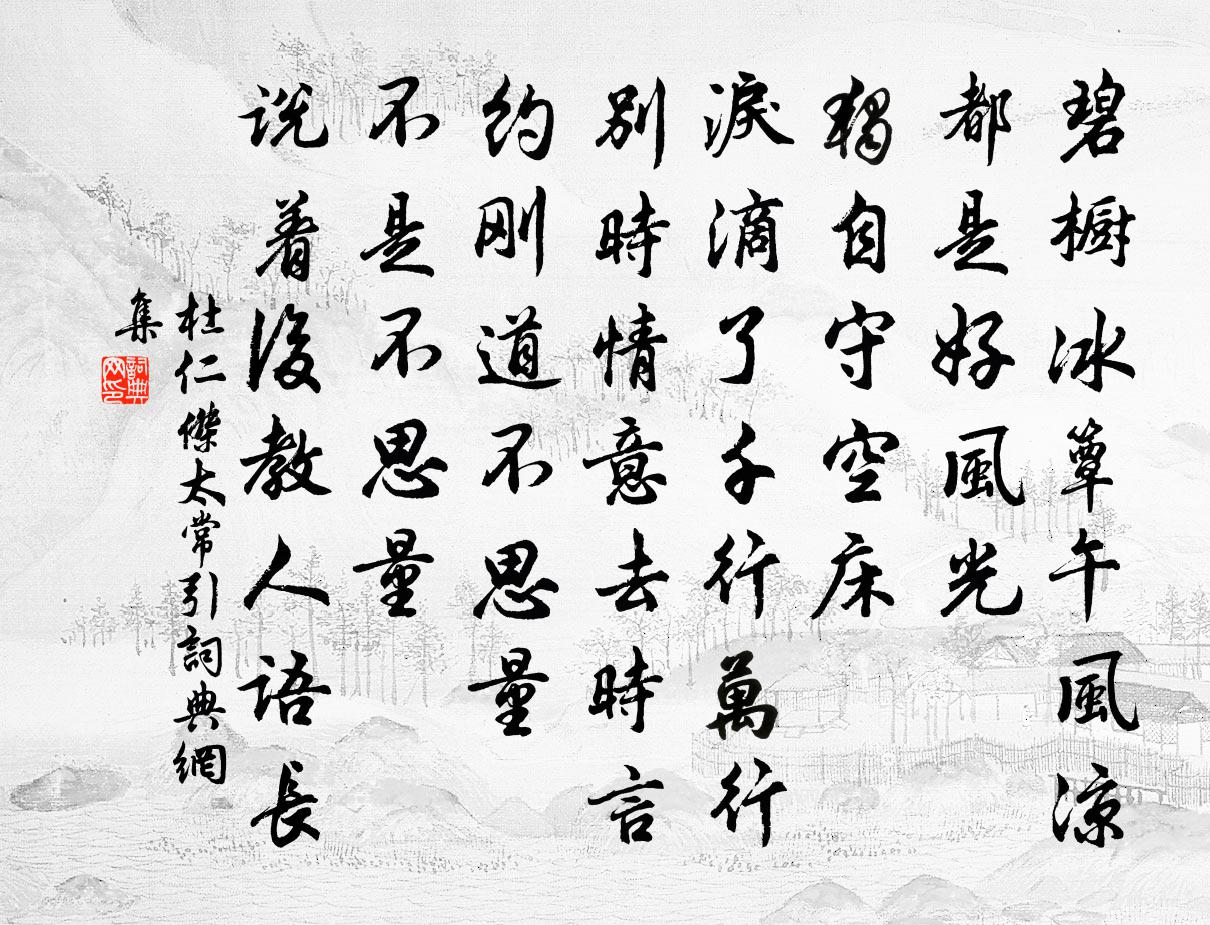 碧橱冰簟午風凉
都是好風光
獨自守空床
淚滴了千行萬行
別時情意去時言
約刚道不思量
不是不思量
说着後教人語長
杜仁傑太常引詞典網
集
詞典网印